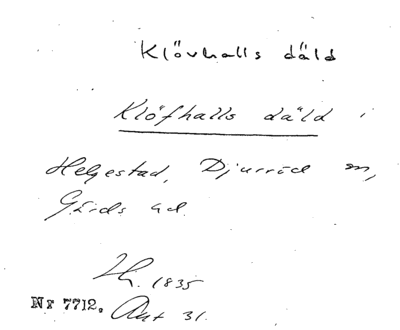 Klövhalls däld
Klöfhalls däld i
Helgestad, Djurröd sn,
Gärds hd.
1835
Nr 7712. Akt 31.